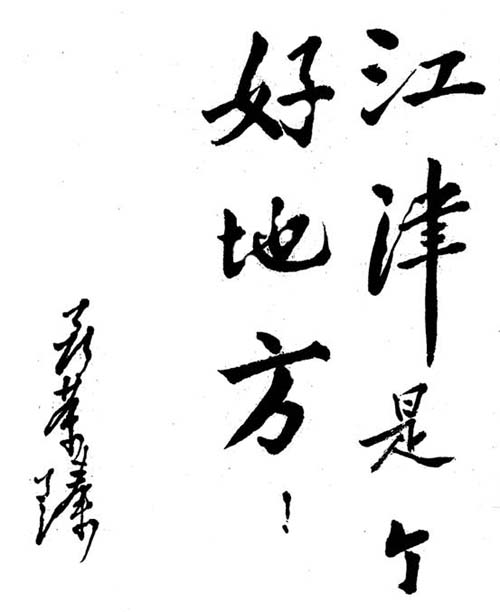 江津是个
好地方！
聂荣臻